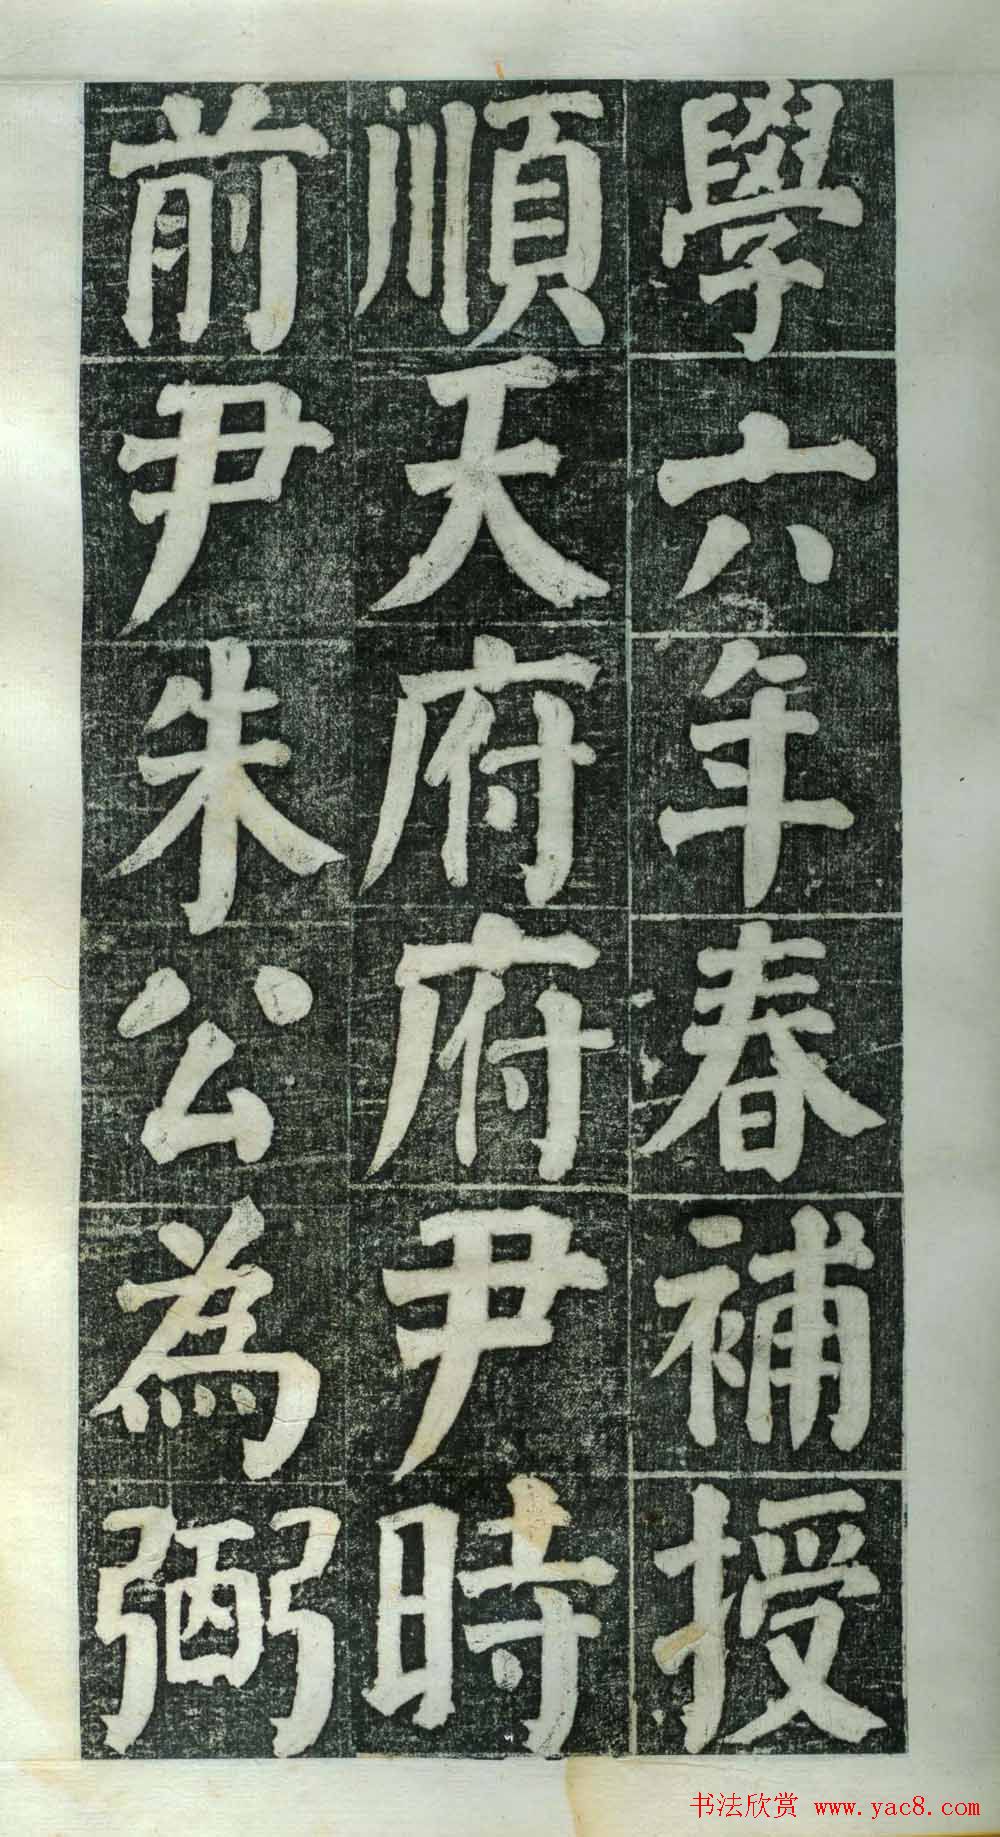 學六年春補授
順天府府尹時
前尹朱公為弼
书法欣赏 www.yac8.com